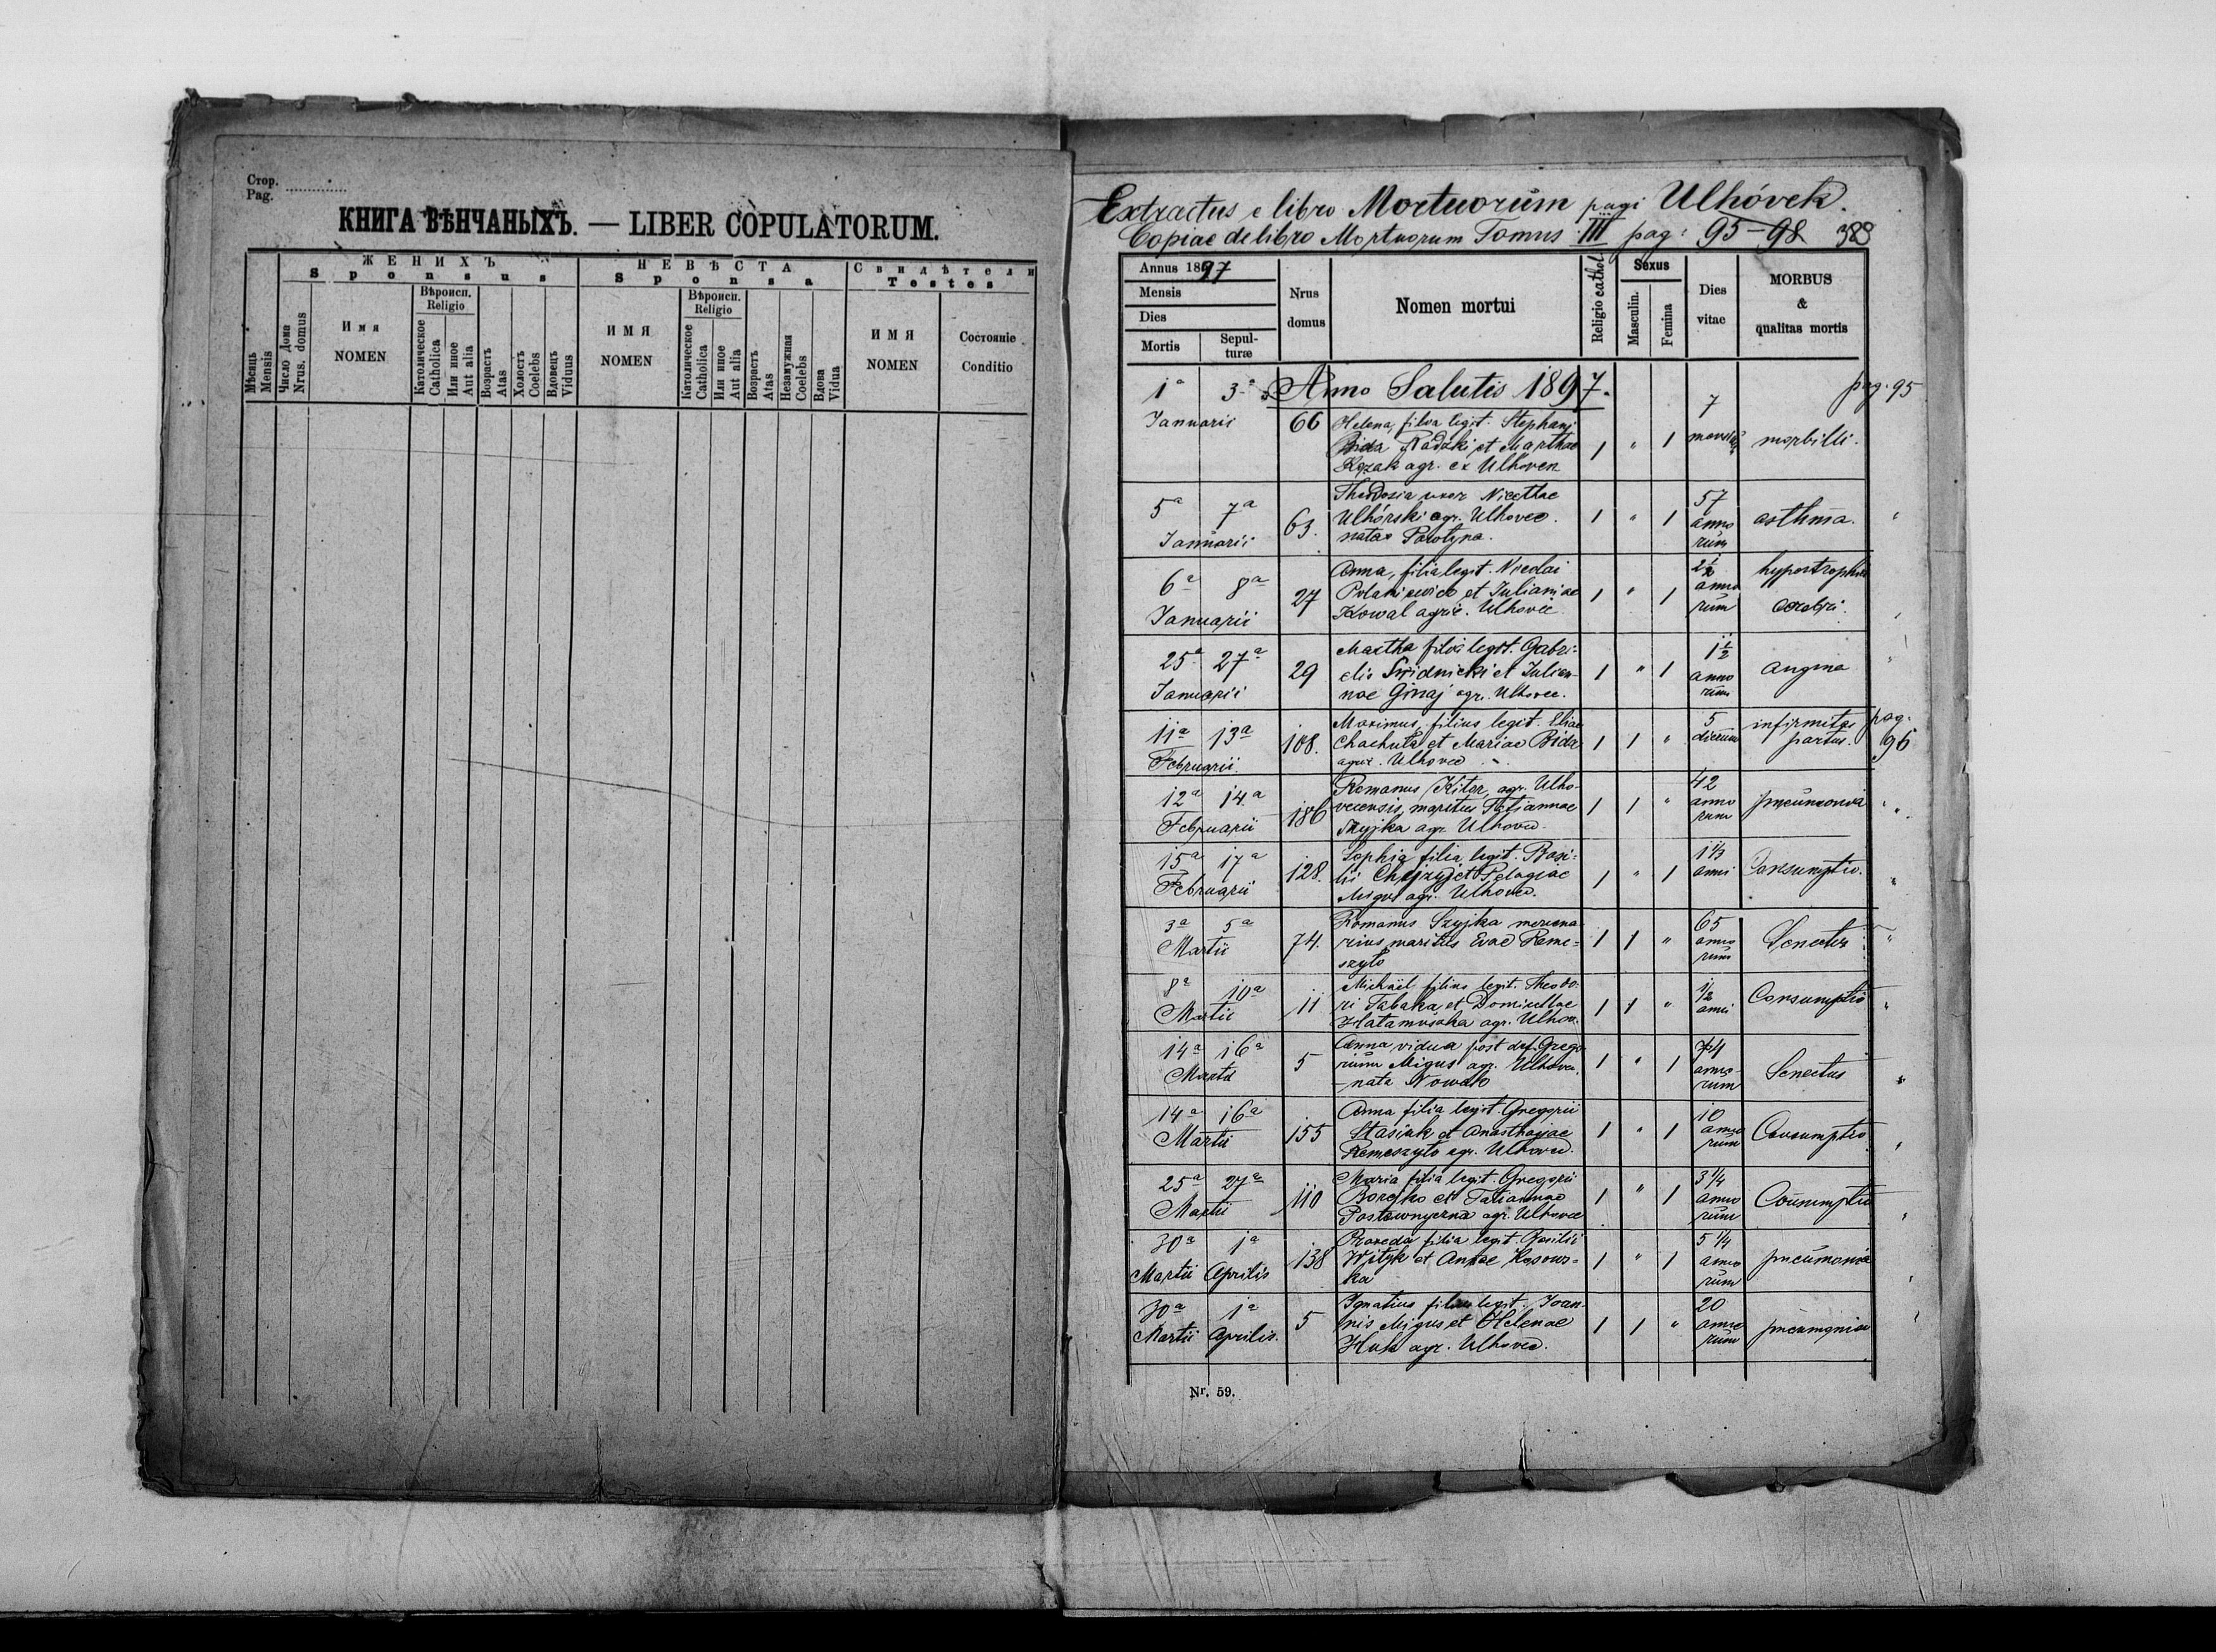 Стор.
Pag.
КНИГА ВѢНЧАНЫХЪ. — LIBER COPULATORUM.
Мѣсяць
Mensis
Число Дома
Nrus. domus
ЖЕНИХЪ
Sponsus
Имя
NOMEN
Вѣроисп.
Religio
Католическое
Catholica
Или иное
Aut alia
Возрастъ
Atas
Холостъ
Coelebs
Вдовецъ
Viduus
НЕВѢСТА
Sponsa
ИМЯ
NOMEN
Вѣроисп.
Religio
Католическое
Catholica
Или иное
Aut alia
Возрастъ
Atas
Незамужная
Coelebs
Вдова
Vidua
Свидѣтели
Testes
ИМЯ
NOMEN
Состояніе
Conditio
Extractus e libro Mortuorum pagi Ulhóvek.
Copiae de libro Mortuorum Tomus III pag: 95–98
Annus 1897
Mensis
Dies
Mortis
Sepul-
turæ
Nrus
domus
Nomen mortui
Religio cathol.
Sexus
Masculin.
Femina
Dies
vitae
MORBUS
&
qualitas mortis
Anno Salutis 1897.
pag. 95
1ª 3ª
Januaris
66
Helena, filia legit. Stephani
Bida Radzki et Marthae
Kozak agr. ex Ulhovek
1 " 1
7
morbilli.
5ª 7ª
Januarii
63.
Theodosia uxor Nicetae
Ulhórski agr. Ulhovec.
nata
1 " 1
57
anno
rum
asthma.
6ª 8ª
Januarii
27
Anna, filia legit. Nicolai
et Julianae
Kowal agric. Ulhovec
1 " 1
2½
anno
rum
cerebri.
25ª 27ª
Januarii
29
Martha filia legit. Gabri-
elis Swidnicki et Julian-
nae agr. Ulhovec.
1 " 1
1½
anno
rum
angina
11ª 13ª
Februarii.
108.
Maximus, filius legit. Eliae
Chachuła et Mariae Bida
agric. Ulhovec
1 1 "
5
dierum
infirmitas
partus.
pag.
96
12ª 14.ª
Februarii
186
Romanus Kiter, agr. Ulho-
vecensis, maritus Tatiannae
Szyjka agr. Ulhovec.
1 1 "
42
anno
rum
pneumonia
15ª 17ª
Februarii
128.
Sophia filia legit. Basi-
lii et Pelagiae
Migus agr. Ulhovec.
1 " 1
1⅓
anni
Consumptio.
3ª 5ª
Martii
74.
Romanus Szyjka mercena
rius maritus Evae Reme-
szyło
1 1 "
65
anno
rum
Senectus
8ª 10ª
Martii
11
Michaël filius legit. Theodo-
ri Tabaka et Domicellae
agr. Ulhov.
1 1 "
½
anni
Consumptio
14ª 16ª
Martii
5
Anna, vidua post def. Grego
rium Migus agr. Ulhovec.
nata
1 " 1
74
anno-
rum
Senectus
14ª 16ª
Martii
155
Anna filia legit. Gregorii
Stasiuk et Anasthasiae
Remeszyło agr. Ulhovec.
1 " 1
10
anno
rum
Consumptio
25ª 27ª
Martii
110
Maria filia legit. Gregorii
Borejko et Tatiannae
agr. Ulhovec
1 " 1
3¼
anno
rum
Consumptio
30ª 1ª
Martii Aprilis
138
filia legit. Basilii
Wityk et Annae Kosows-
ka
1 " 1
5¼
anno
rum
pneumonia
30ª 1ª
Martii Aprilis.
5
Ignatius filius legit. Joan-
nis Migus et Helenae
Huk agr. Ulhovec.
1 1 "
20
anno
rum
pneumonia
Nr. 59.